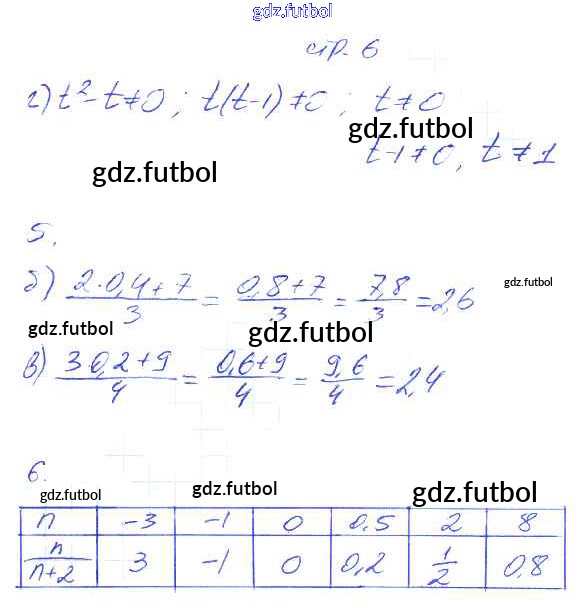 gdz.futbol
стр. 6
г) t² - t ≠ 0 ; t(t-1) ≠ 0 ; t ≠ 0
gdz.futbol
t-1 ≠ 0, t ≠ 1
gdz.futbol
5.
б) (2·0,4+7)/3 = (0,8+7)/3 = 7,8/3 = 2,6
gdz.futbol
gdz.futbol gdz.futbol
в) (3 0,2+9)/4 = (0,6+9)/4 = 9,6/4 = 2,4
6.
gdz.futbol gdz.futbol gdz.futbol
n -3 -1 0 0,5 2 8
n/(n+2) 3 -1 0 0,2 1/2 0,8